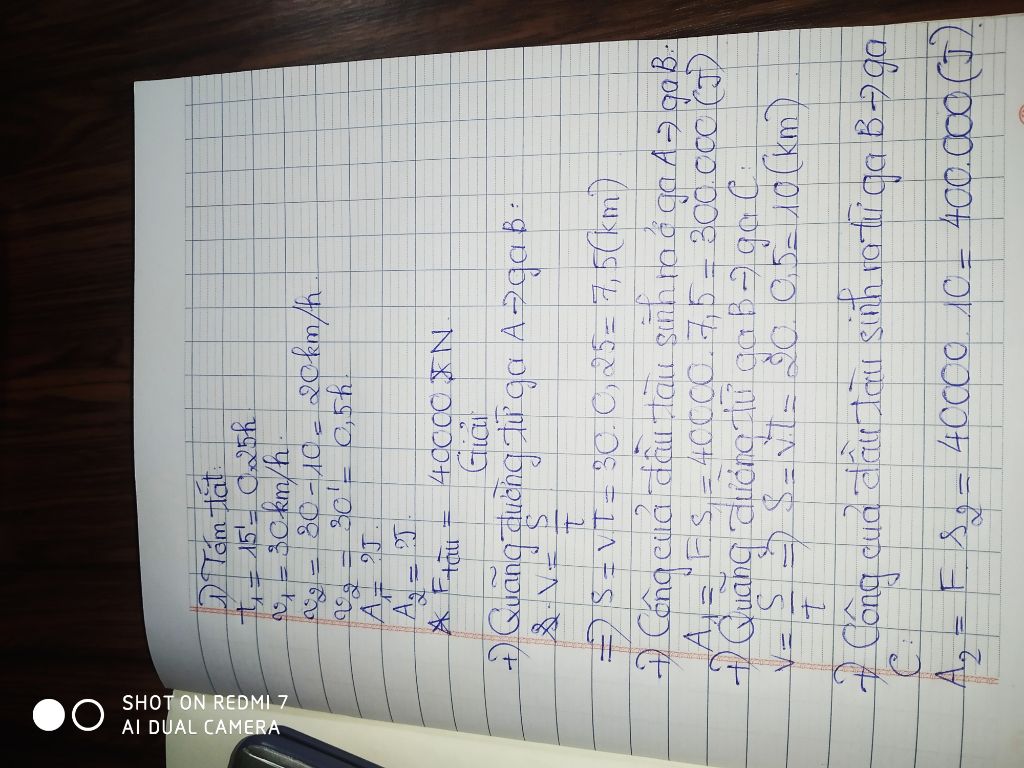 1) Tóm tắt:
t1 = 15' = 0,25h
v1 = 30km/h.
v2 = 30-10 = 20km/h.
v2 = 30' = 0,5h.
A1 = ?J.
A2 = ?J.
Ftàu = 40000 N.
Giải
+) Quãng đường từ ga A → ga B:
v = S/t
=) S = vT = 30. 0,25 = 7,5(km)
+) Công của đầu tàu sinh ra ở ga A → ga B:
A1 = F.S = 40000. 7,5 = 300.000 (J)
+) Quãng đường từ ga B → ga C:
v = S/t =) S = vT = 20. 0,5 = 10(km)
+) Công của đầu tàu sinh ra từ ga B → ga
C:
A2 = F. s2 = 40000. 10 = 400.000 (J).
SHOT ON REDMI 7
AI DUAL CAMERA